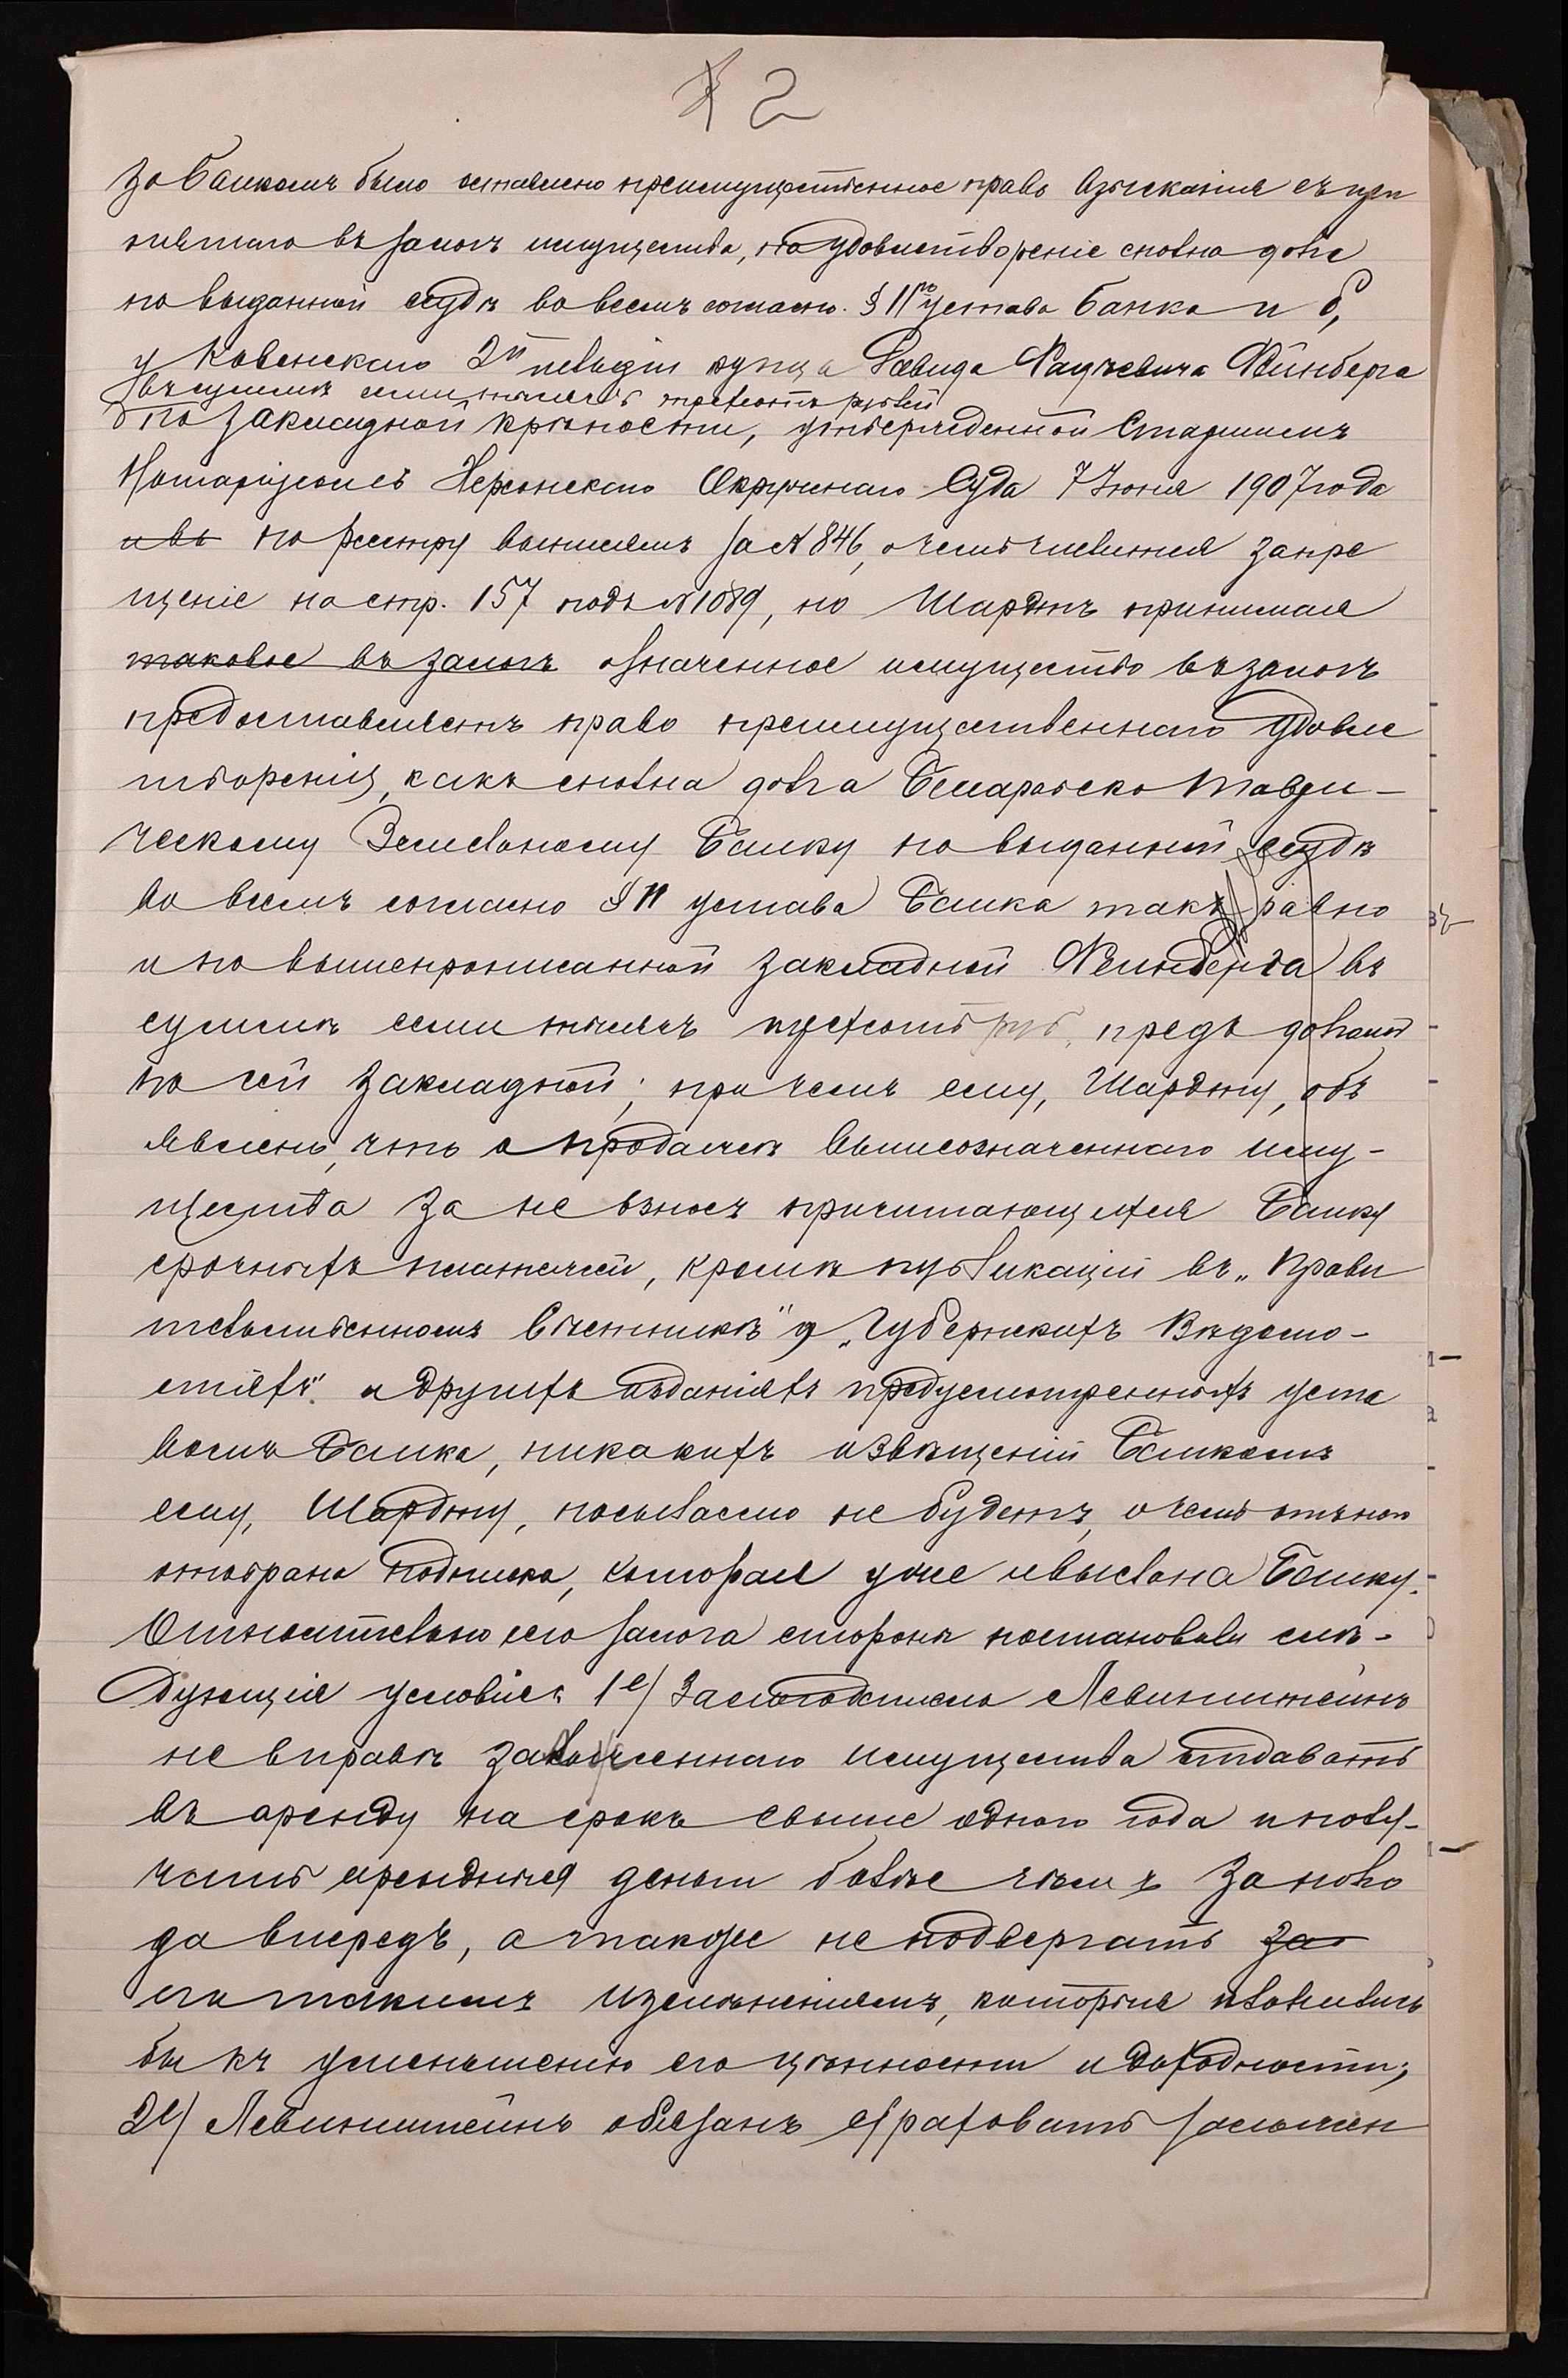 2
за Банкомъ было оставлено преимущественное право взысканія съ при
нятаго въ залогъ имущества, на удовлетвореніе сполна долга
по выданной ссудѣ во всемъ согласно § 11го устава Банка и б,
у Ковенскаго 2й гильдіи купца Давида Фейнберга
въ суммѣ семи тысячъ трехсотъ рублей
по закладной крѣпости, утвержденной Старшимъ
Нотаріусомъ Херсонскаго Окружнаго Суда 7 Іюня 1907 года
и въ по реестру крѣпостныхъ за № 846, о чемъ числится запре
щеніе на стр. 157 подъ № 1089, но Шардтъ принимая
таковое въ залогъ означенное имущество въ залогъ
предоставляетъ право преимущественнаго удовле
творенія, какъ сполна долга Бессарабско Таври-
ческому Земельному Банку по выданной ссудѣ
во всемъ согласно § 11 устава Банка такъ равно
и по вышепрописанной закладной Фейнберга въ
суммѣ семи тысячъ трехсотъ руб. предъ долгомъ
по сей закладной; при чемъ ему, Шардту, объ
явлено, что о продажѣ вышеозначеннаго иму-
щества за не взносъ причитающихся Банку
срочныхъ платежей, кромѣ публикацій въ „Прави
тельственномъ Вѣстникѣ" и „Губернскихъ Вѣдомо-
стяхъ" и другихъ изданіяхъ предусмотренныхъ уста
вомъ Банка, никакихъ извѣщеній Банкомъ
ему, Шардту, посылаемо не будетъ, о чемъ отъ него
отобрана подписка, которая уже выслана Банку.
Относительно сего залога стороны постановили слѣ-
дующія условія: 1е/ Залогодатель Левинштейнъ
не вправѣ заложеннаго имущества отдавать
въ аренду на срокъ свыше одного года и полу-
чать арендныя деньги болѣе чѣмъ за пол го
да впередъ, а также не подвергать за
его такимъ измѣненіямъ, которыя клонились
бы къ уменьшенію его цѣнности и доходности;
2е/ Левинштейнъ обязанъ страховать заложен